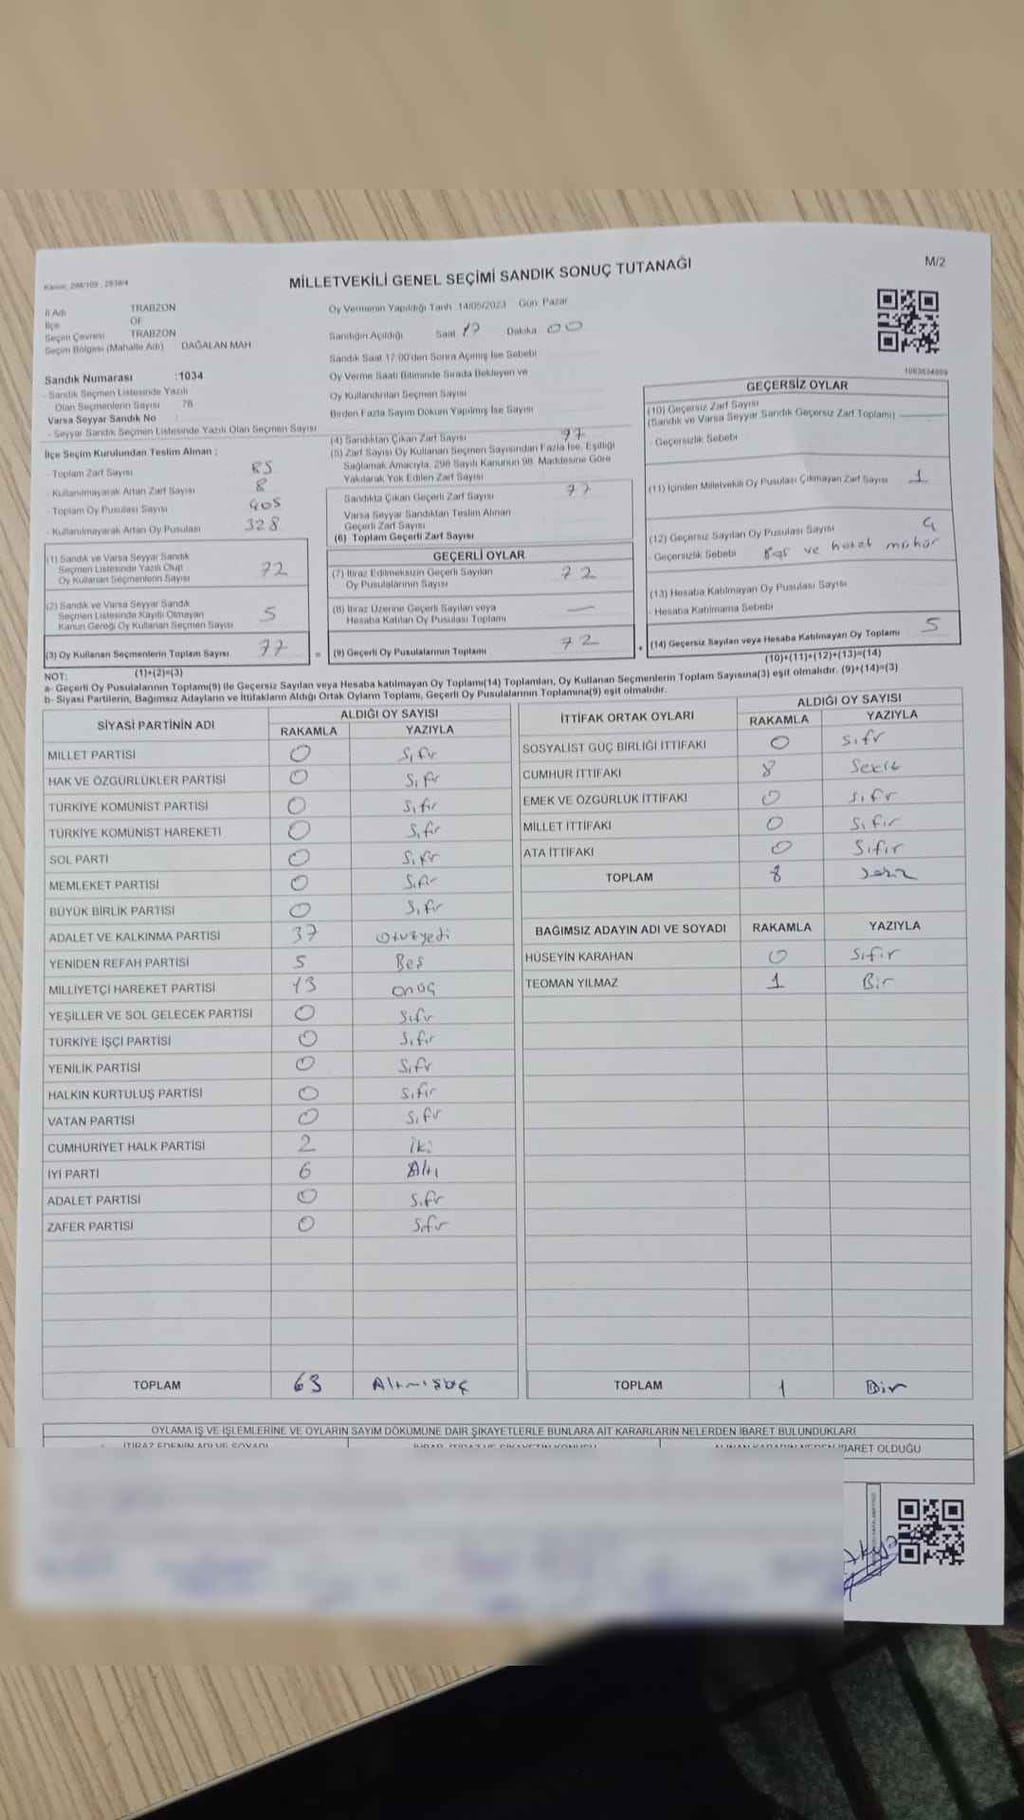 MİLLETVEKİLİ GENEL SEÇİMİ SANDIK SONUÇ TUTANAĞI
M/2
İl Adı TRABZON
İlçe OF
Seçim Çevresi TRABZON
Seçim Bölgesi (Mahalle Adı) DAĞALAN MAH
Sandık Numarası :1034
- Sandık Seçmen Listesinde Yazılı
Olan Seçmenlerin Sayısı 78
Varsa Seyyar Sandık No
- Seyyar Sandık Seçmen Listesinde Yazılı Olan Seçmen Sayısı
Oy Vermenin Yapıldığı Tarih 14/05/2023 Gün Pazar
Sandığın Açıldığı Saat 17 Dakika 00
Sandık Saat 17:00'den Sonra Açılmış İse Sebebi
Oy Verme Saati Bitiminde Sırada Bekleyen ve
Oy Kullandırılan Seçmen Sayısı
Birden Fazla Sayım Döküm Yapılmış İse Sayısı
İlçe Seçim Kurulundan Teslim Alınan :
- Toplam Zarf Sayısı 85
- Kullanılmayarak Artan Zarf Sayısı 8
- Toplam Oy Pusulası Sayısı 405
- Kullanılmayarak Artan Oy Pusulası 328
(1) Sandık ve Varsa Seyyar Sandık
Seçmen Listesinde Yazılı Olup
Oy Kullanan Seçmenlerin Sayısı 72
(2) Sandık ve Varsa Seyyar Sandık
Seçmen Listesinde Kayıtlı Olmayan
Kanun Gereği Oy Kullanan Seçmen Sayısı 5
(3) Oy Kullanan Seçmenlerin Toplam Sayısı 77
(1)+(2)=(3)
(4) Sandıktan Çıkan Zarf Sayısı 77
(5) Zarf Sayısı Oy Kullanan Seçmen Sayısından Fazla İse, Eşitliği
Sağlamak Amacıyla, 298 Sayılı Kanunun 98. Maddesine Göre
Yakılarak Yok Edilen Zarf Sayısı
Sandıkta Çıkan Geçerli Zarf Sayısı 77
Varsa Seyyar Sandıktan Teslim Alınan
Geçerli Zarf Sayısı
(6) Toplam Geçerli Zarf Sayısı
GEÇERLİ OYLAR
(7) İtiraz Edilmeksizin Geçerli Sayılan
Oy Pusulalarının Sayısı 72
(8) İtiraz Üzerine Geçerli Sayılan veya
Hesaba Katılan Oy Pusulası Toplamı —
= (9) Geçerli Oy Pusulalarının Toplamı 72
GEÇERSİZ OYLAR
(10) Geçersiz Zarf Sayısı
(Sandık ve Varsa Seyyar Sandık Geçersiz Zarf Toplamı)
- Geçersizlik Sebebi
(11) İçinden Milletvekili Oy Pusulası Çıkmayan Zarf Sayısı 1
(12) Geçersiz Sayılan Oy Pusulası Sayısı 4
- Geçersizlik Sebebi Boş ve hatalı mühür
(13) Hesaba Katılmayan Oy Pusulası Sayısı
- Hesaba Katılmama Sebebi
+ (14) Geçersiz Sayılan veya Hesaba Katılmayan Oy Toplamı 5
(10)+(11)+(12)+(13)=(14)
NOT:
a- Geçerli Oy Pusulalarının Toplamı(9) ile Geçersiz Sayılan veya Hesaba Katılmayan Oy Toplamı(14) Toplamları, Oy Kullanan Seçmenlerin Toplam Sayısına(3) eşit olmalıdır. (9)+(14)=(3)
b- Siyasi Partilerin, Bağımsız Adayların ve İttifakların Aldığı Ortak Oyların Toplamı, Geçerli Oy Pusulalarının Toplamına(9) eşit olmalıdır.
SİYASİ PARTİNİN ADI ALDIĞI OY SAYISI
RAKAMLA YAZIYLA
MİLLET PARTİSİ 0 Sıfır
HAK VE ÖZGÜRLÜKLER PARTİSİ 0 Sıfır
TÜRKİYE KOMÜNİST PARTİSİ 0 Sıfır
TÜRKİYE KOMÜNİST HAREKETİ 0 Sıfır
SOL PARTİ 0 Sıfır
MEMLEKET PARTİSİ 0 Sıfır
BÜYÜK BİRLİK PARTİSİ 0 Sıfır
ADALET VE KALKINMA PARTİSİ 37 Otuzyedi
YENİDEN REFAH PARTİSİ 5 Beş
MİLLİYETÇİ HAREKET PARTİSİ 13 onüç
YEŞİLLER VE SOL GELECEK PARTİSİ 0 Sıfır
TÜRKİYE İŞÇİ PARTİSİ 0 Sıfır
YENİLİK PARTİSİ 0 Sıfır
HALKIN KURTULUŞ PARTİSİ 0 Sıfır
VATAN PARTİSİ 0 Sıfır
CUMHURİYET HALK PARTİSİ 2 İki
İYİ PARTİ 6 Altı
ADALET PARTİSİ 0 Sıfır
ZAFER PARTİSİ 0 Sıfır
TOPLAM 63 Altmışüç
İTTİFAK ORTAK OYLARI ALDIĞI OY SAYISI
RAKAMLA YAZIYLA
SOSYALİST GÜÇ BİRLİĞİ İTTİFAKI 0 Sıfır
CUMHUR İTTİFAKI 8 Sekiz
EMEK VE ÖZGÜRLÜK İTTİFAKI 0 Sıfır
MİLLET İTTİFAKI 0 Sıfır
ATA İTTİFAKI 0 Sıfır
TOPLAM 8 Sekiz
BAĞIMSIZ ADAYIN ADI VE SOYADI RAKAMLA YAZIYLA
HÜSEYİN KARAHAN 0 Sıfır
TEOMAN YILMAZ 1 Bir
TOPLAM 1 Bir
OYLAMA İŞ VE İŞLEMLERİNE VE OYLARIN SAYIM DÖKÜMÜNE DAİR ŞİKAYETLERLE BUNLARA AİT KARARLARIN NELERDEN İBARET BULUNDUKLARI
İTİRAZ EDENİN ADI VE SOYADI
İBARET OLDUĞU